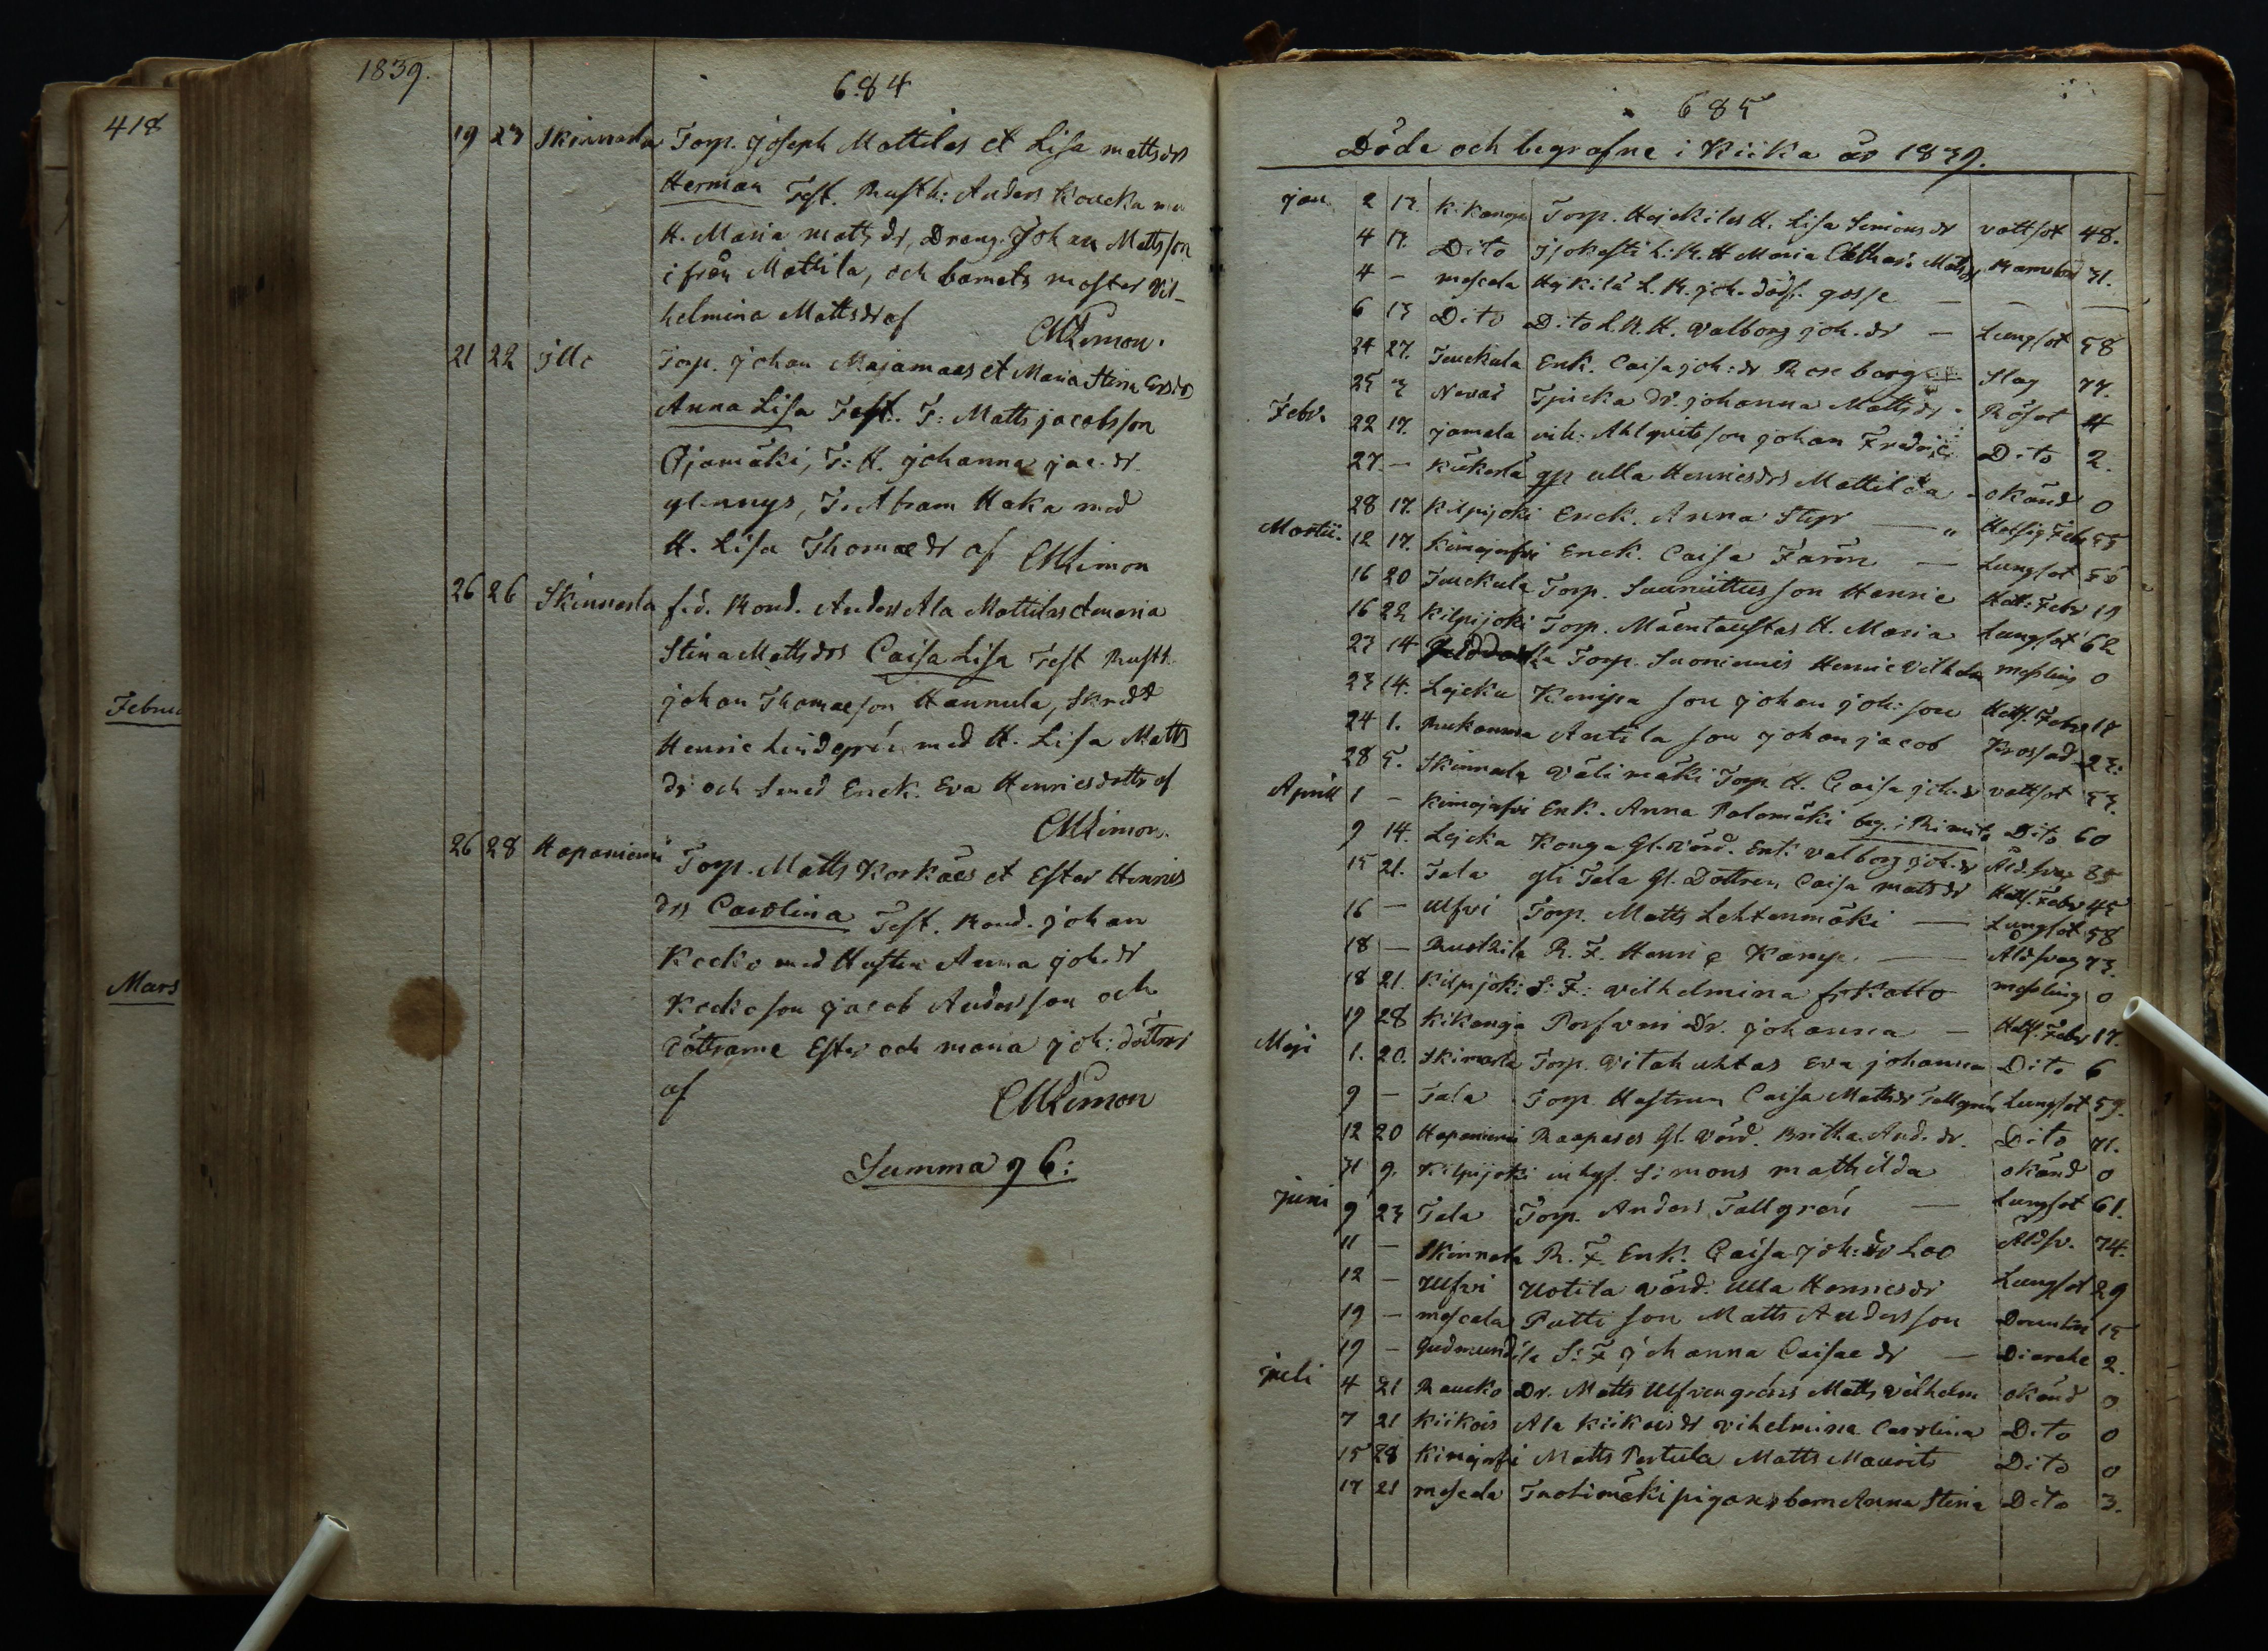 418
Februa
Mars
1839.
684
19 23 Skinnarla Torp. Joseph Mattilas et Lisa mattsdrs
Herman Test. Rusth: Anders Koucka med
H. Maria matts dr, Dräng. Johan Mattsson
ifrån Mattila, och barnets moster Vil-
helmina Mattsdr af CMLimon.
21 22 Illo Torp. Johan Majamaas et Maria Stina Ersdrs
Anna Lisa Test. T: Matts Jacobsson
Ojamäki, T: H. Johanna Jac. dr.
Torp. Abram Haka med
H. Lisa Thomae dr af CMLimon
26 26 Skinnarla Bond. Anders Ala Mattilas et maria
Stina Mattsdrs Caisa Lisa Test Rusth.
Johan Thomaeson Hannula, Skredd
Henric Lindgrén med H. Lisa Matts
dr och Smed Enck. Eva Henricsdotter af
CMLimon.
26 28 Haponiemi Torp. Matts Korkaes et Ester Henrics
drs Carolina Test. Bond. Johan
Kecko med Hustrun Anna joh. dr
Kecko son Jacob Andersson och
döttrarne Ester och maria joh: döttrar
af CMLimon
Summa 96:
685
Döde och begrafne i Kiika år 1839.
Jan. 2 13. Kikanoja Torp. Hejckilas H. Lisa Simons dr vattsot 48.
4 13. Dito H Maria Cathar: Matsdr Barnsbörd 31.
4 – mescala Hejkilä L. B. joh. dödf. gosse – – –
6 13 Dito Dito L. B. H. Valborg joh. dr – Lungsot 58
24 27. Juckula Enk. Caisa joh: dr Roseborg – Slag 77.
25 3 dr. Johanna Mattsdr. Rösot 4
Febr. 22 17. Jamala Ahlqvists son Johan Fredric Dito 2.
27. – Ulla Henricsdrs Mattilda okänd 0
28 17. Kilpijoki Enck. Anna – " Hetsig Feber 55
Martii. 12 17. Kimajerfvi Enck. Caisa – Lungsot
16 20 Juckula Torp. son Henric Hett: Feber 19
16 24 Kilpijoki Torp. Mäentaustas H. Maria Lungsot 62
23 14 Torp. Suoniemis Henric Vilhelm messling 0
23 14. Lejcku son Johan joh: son Hetts. Feber 18
24 1. Antila son Johan Jacob Krossad 23.
28 5. Skinnarla Välimäki Torp. H. Caisa joh. dr vattsot 53.
Aprill 1 – Kimajerfvi Enk. Anna Palomäki beg. i Rimito Dito 60
9 14. Lejcku Konga Gl. värd. Enk. Valborg joh. dr Åld.svag 85
15 21. Tala Tala Gl. Dottren Caisa matts dr Hetts. Feber 45
16 – Ulfvi Torp. Matts Lehtenmäki – Lungsot 58
18 – Ruokila R. F. Henric Kämp. – Åldsvag 73.
18 21. Kilpijoki S: F: Vilhelmina messling 0
19 28 Kikanoja dr. Johanna – Hetts. Feber 17.
Maji 1. 20. Skinnarla Torp. Vitakuhtas Eva Johanna Dito 6
9 – Tala Torp. Hustrun Caisa Mattsdr Tallgrén Lungsot 59.
12 20 Haponiemi Raapases Gl. Värd. Britha And. dr. Dito 71.
31 9. Kilpijoki Simons mathilda okänd 0
Juni 9 23 Tala Torp. Anders Tallgrén – Lungsot 61.
11 – Skinnarla R. F. Enk. Caisa joh: dr Loo Åldsv. 74.
12 – Ulfvi Uotila värd. Ulla Henricsdr Lungsot 29
19 – mescala Putti son Matts Andersson 15
19 – Gudmundila S: F Johanna Caisae dr – Diarehe 2.
Juli 4 21 Raucko Dr. Matts Ulfvengréns Matts Vilhelm okänd 0
7 21 Kiikois Ala Kiikois dr Vihelmina Carolina Dito 0
15 28 Kimajerfvi Matts Pertula Matts Maurits Dito 0
17 21 mescala Tuohimäki pigans barn Anna Stina Dito 3.